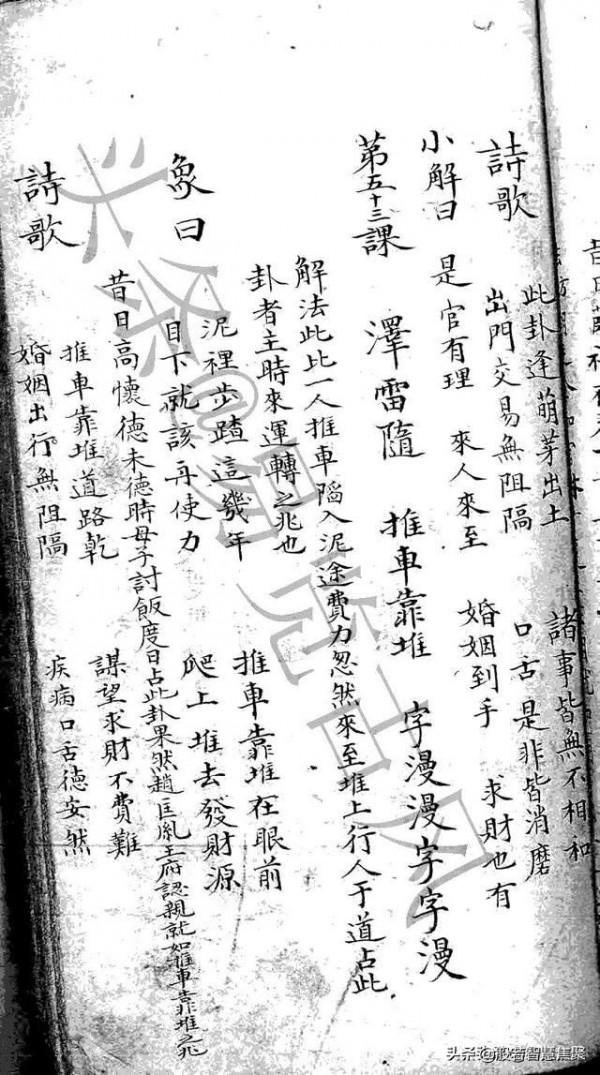 詩歌 此卦逢萌芽出土 諸事皆無不相和
出門交易無阻隔 口舌是非皆消磨
小解曰 是官有理 來人來至 婚姻到手 求財也有
第五十三課 澤雷隨 推車靠堆 字漫漫字字漫
解法此比一人推車陷入泥途費力忽然來至堆上行人于道占此
卦者主時來運轉之兆也
象曰 泥裡步蹅這幾年 推車靠堆在眼前
目下就該再使力 爬上堆去發財源
昔日高懷德未德時母子討飯度日占此卦果然趙匡胤王府認親就如推車靠堆之兆
詩歌 推車靠堆道路乾 謀望求財不費難
婚姻出行無阻隔 疾病口舌德安然
头条@般若智慧焦聚